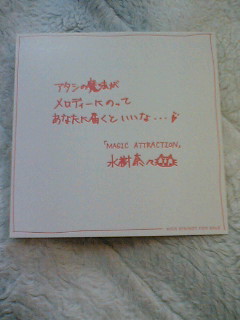 アタシの魔法が
メロディーにのって
あなたに届くといいな...♪
「MAGIC ATTRACTION」
水樹奈々